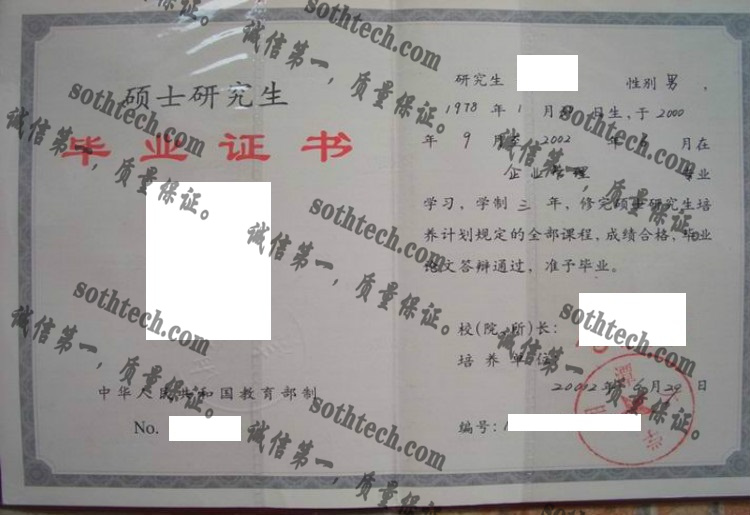 硕士研究生
毕业证书
中华人民共和国教育部制
No.
研究生 性别 男 ,
1978 年 1 月 日生,于 2000
年 9 月至 2002 年 月在
企业管理 专业
学习,学制 三 年,修完硕士研究生培
养计划规定的全部课程,成绩合格,毕业
论文答辩通过,准予毕业。
校(院、所)长:
培养单位
20012 年 6 月 29 日
编号:
sothtech.com
诚信第一,质量保证。
sothtech.com
诚信第一,质量保证。
sothtech.com
诚信第一,质量保证。
sothtech.com
诚信第一,质量保证。
sothtech.com
诚信第一,质量保证。
sothtech.com
诚信第一,质量保证。
sothtech.com
诚信第一,质量保证。
sothtech.com
诚信第一,质量保证。